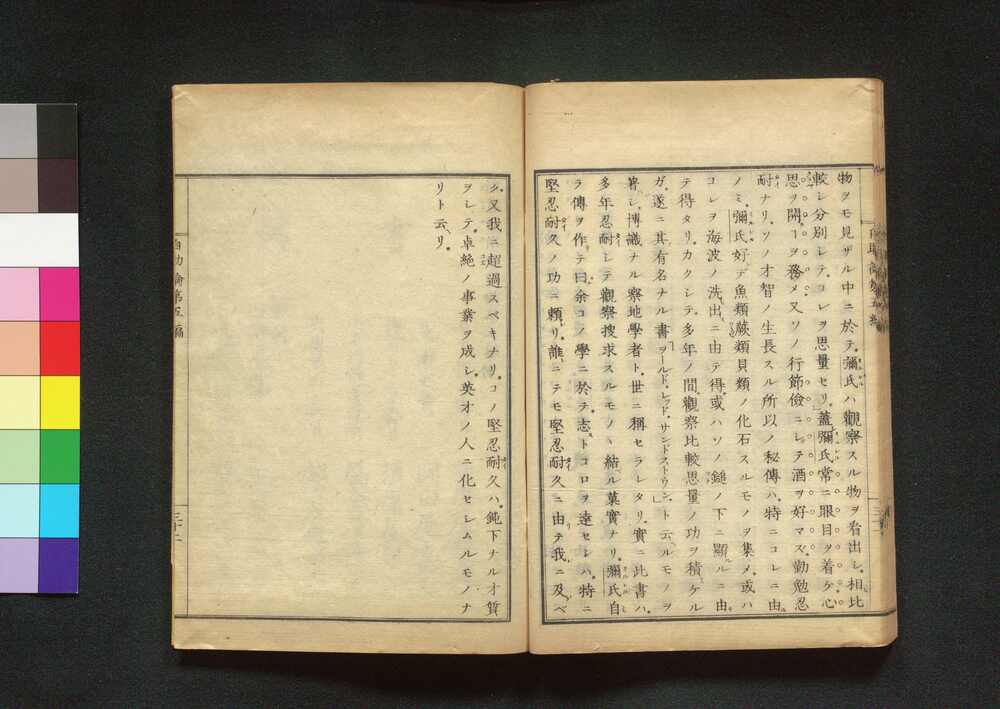 物ヲモ見ザル中ニ於テ、彌氏ハ觀察スル物ヲ看出シ、相比
較シ分別シテ、コレヲ思量セリ、蓋彌氏常ニ眼目ヲ着ケ心
思ヲ開クヿヲ務メ又ソノ行節儉ニシテ酒ヲ好マズ、勤勉忍
耐ナリ、ソノ才智ノ生長スル所以ノ秘傳ハ、特ニコレニ由
ノミ、彌氏好デ魚類蕨類貝類ノ化石スルモノヲ集メ、或ハ
コレヲ海波ノ洗出ニ由テ得、或ハソノ鎚ノ下ニ顯ルニ由
テ得タリ、カクシテ、多年ノ間觀察比較思量ノ功ヲ積ケル
ガ、遂ニ其有名ナル書ヲールド、レッド、サンドストウント云ルモノヲ
著シ、博識ナル察地學者ト、世ニ稱セラレタリ、實ニ此書ハ、
多年忍耐シテ觀察搜求スルモノヽ結ル菓實ナリ、彌氏自
ラ傳ヲ作テ曰余コノ學ニ於テ、志トコロヲ達セシハ、特ニ
堅忍耐久ノ功ニ頼リ、誰ニテモ堅忍耐久ニ由テ我ニ及ベ
シ、又我ニ超過スベキナリ、コノ堅忍耐久ハ、鈍下ナル才質
ヲシテ、卓絶ノ事業ヲ成シ、英才ノ人ニ化セシムルモノナ
リト云リ。
自助論第五編
三十二